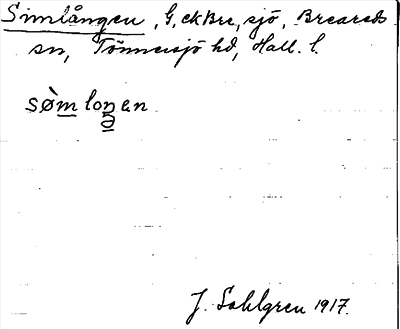 Simlången, G, ckBre, sjö, Breareds
sn, Tönnersjö hd, Hall. l.
sø̀m loŋən
J. Sahlgren 1917.